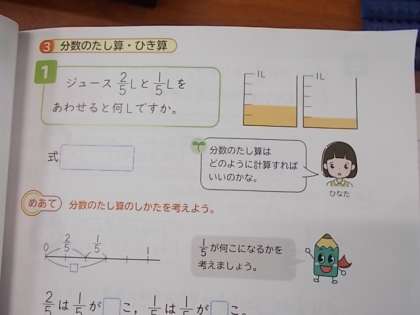 3 分数のたし算・ひき算
1
ジュース 2/5 Lと 1/5 Lを
あわせると何Lですか。
1L
1L
式
分数のたし算は
どのように計算すれば
いいのかな。
ひなた
めあて 分数のたし算のしかたを考えよう。
0 2/5 1/5 1
1/5 が何こになるかを
考えましょう。
2/5 は 1/5 が□こ, 1/5 は 1/5 が□こ。